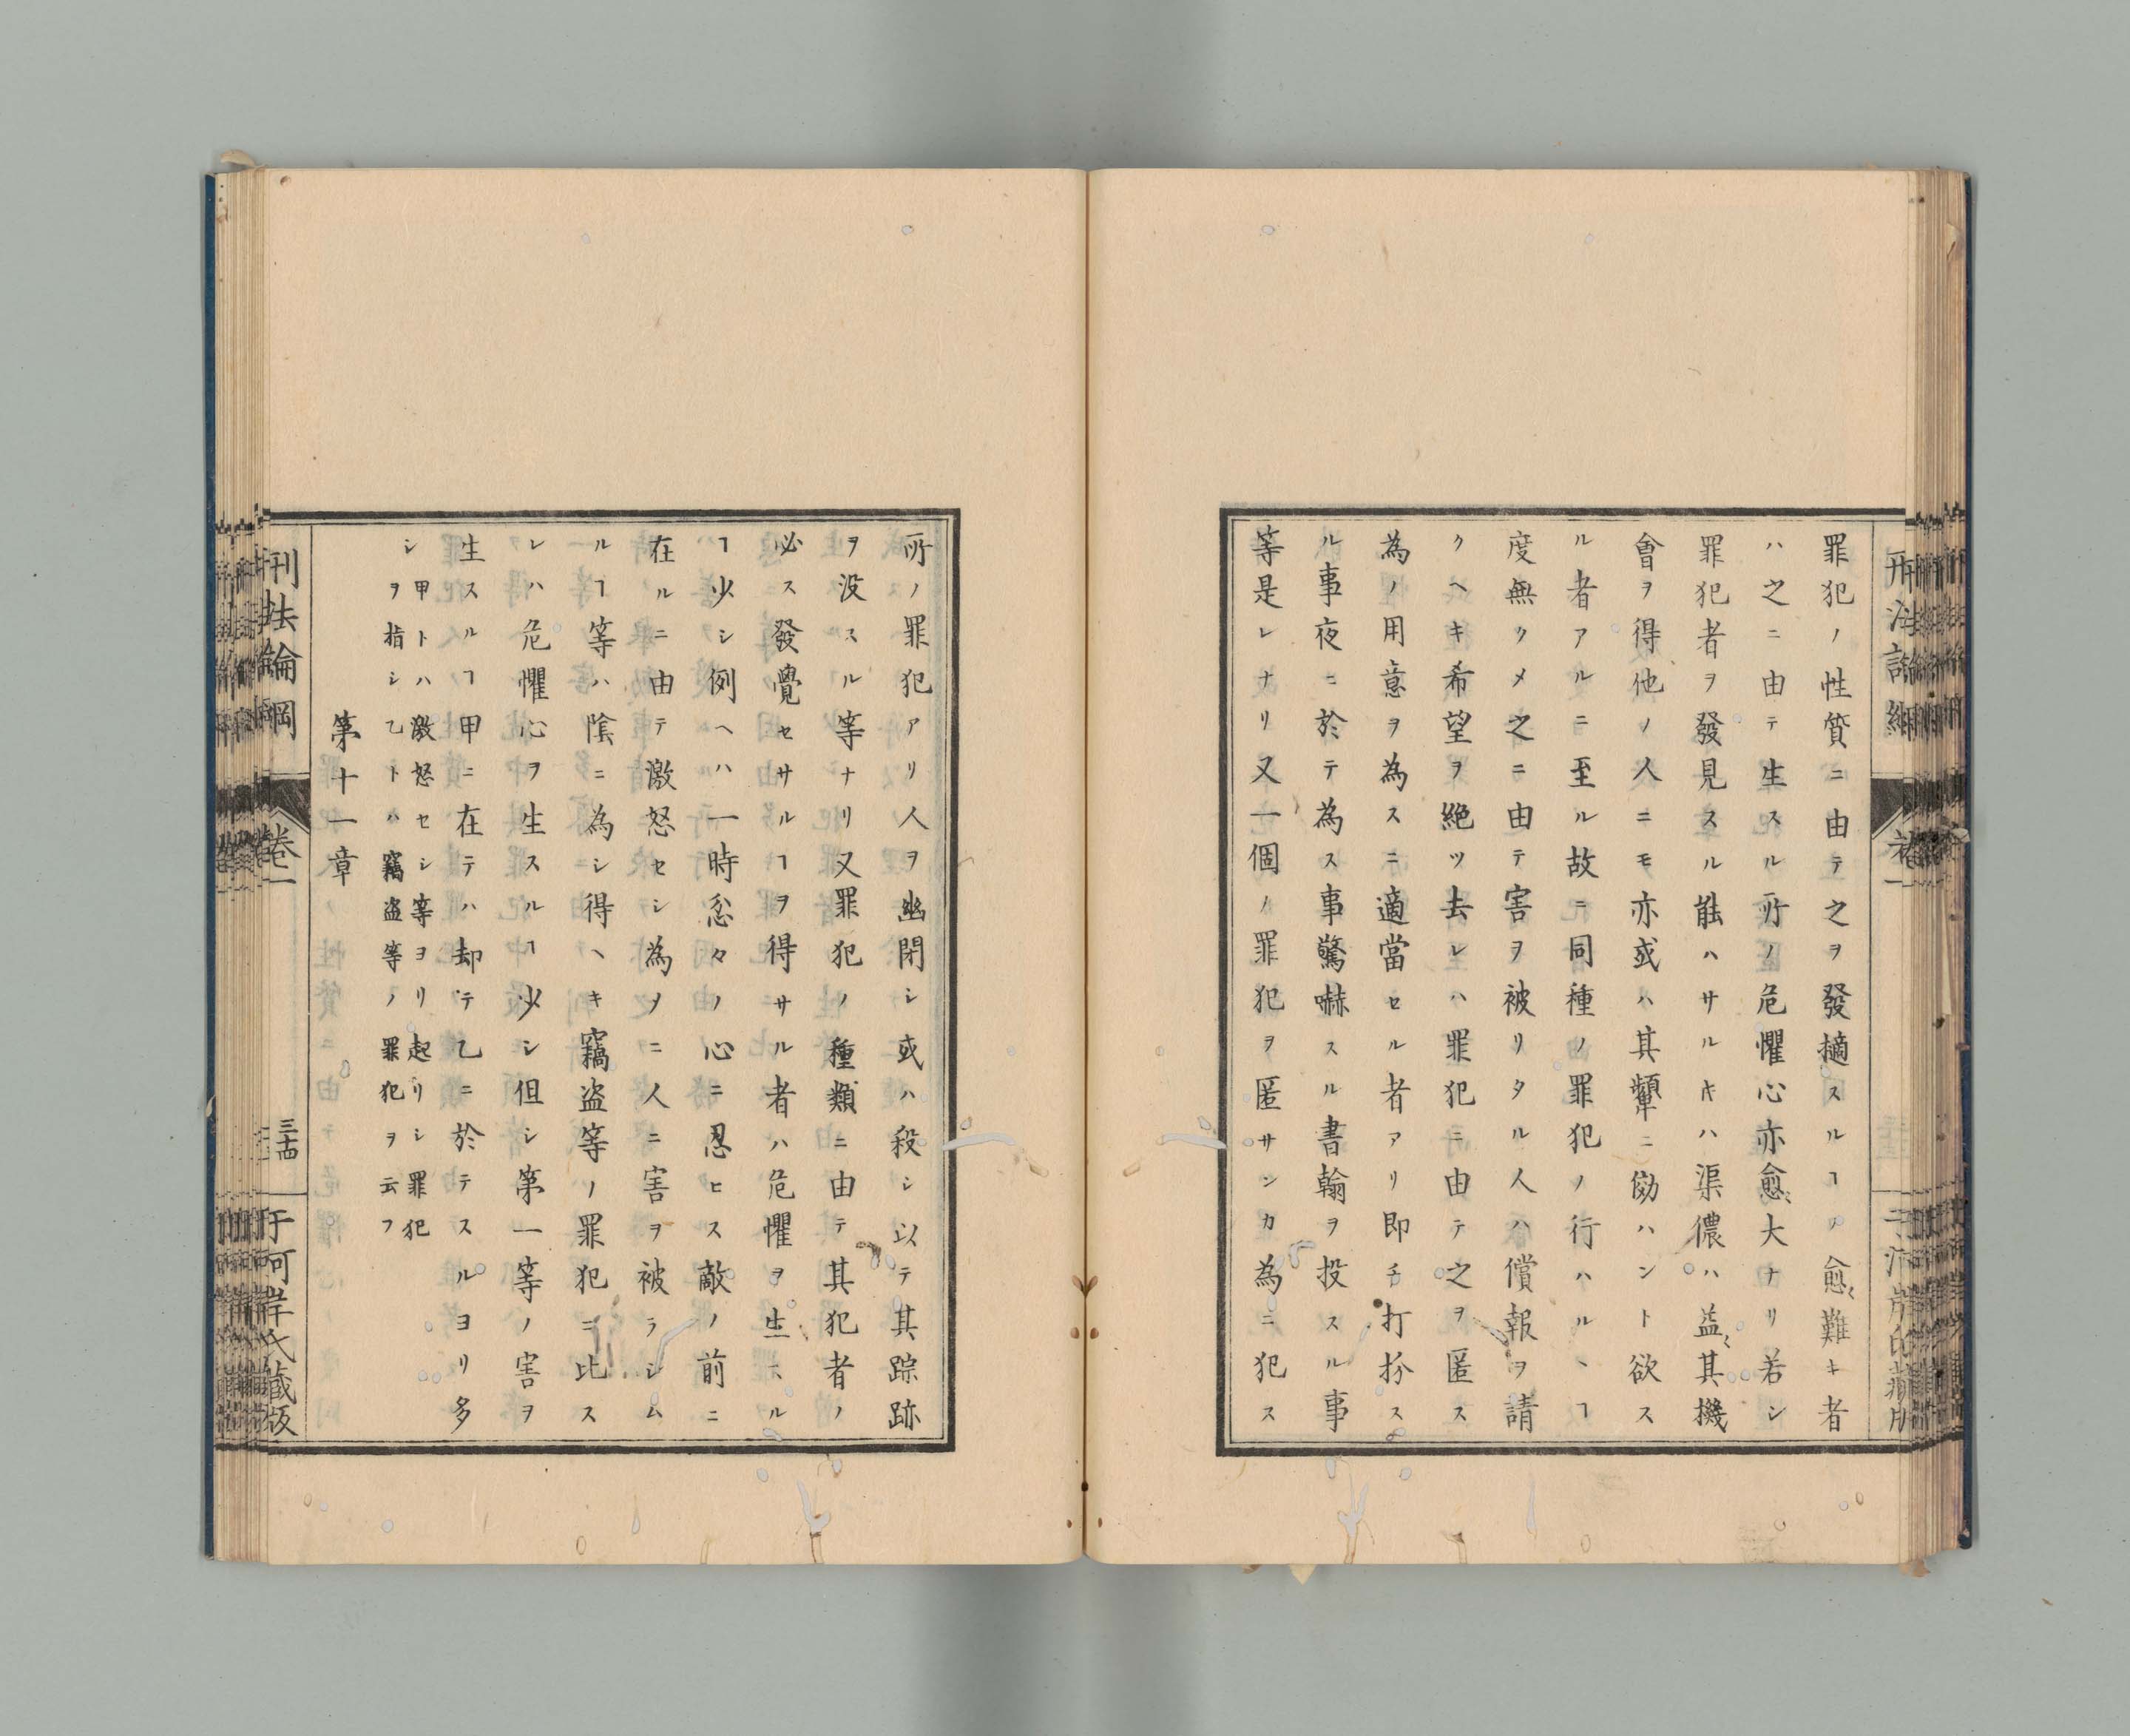 罪犯ノ性質ニ由テ之ヲ發擿スルヿノ愈〻難キ者
ハ之ニ由テ生スル所ノ危懼心亦愈〻大ナリ若シ
罪犯者ヲ發見スル能ハサルキハ渠儂ハ益〻其機
會ヲ得他ノ人ニモ亦或ハ其顰ニ傚ハント欲ス
ル者アルニ至ル故ニ同種ノ罪犯ノ行ハルヽヿ
度無クメ之ニ由テ害ヲ被リタル人ハ償報ヲ請
クヘキ希望ヲ絶ツ去レハ罪犯ニ由テ之ヲ匿ス
為ノ用意ヲ為スニ適當セル者アリ即チ打扮ス
ル事夜ニ於テ為ス事驚嚇スル書翰ヲ投スル事
等是レナリ又一個ノ罪犯ヲ匿サンカ為ニ犯ス
所ノ罪犯アリ人ヲ幽閉シ或ハ殺シ以テ其踪跡
ヲ没スル等ナリ又罪犯ノ種類ニ由テ其犯者ノ
必ス發覺セサルヿヲ得サル者ハ危懼ヲ生スル
ヿ少シ例ヘハ一時忿々ノ心ニ忍ヒス敵ノ前ニ
在ルニ由テ激怒セシ為メニ人ニ害ヲ被ラシム
ルヿ等ハ陰ニ為シ得ヘキ竊盗等ノ罪犯ニ比ス
レハ危懼心ヲ生スルヿ少シ但シ第一等ノ害ヲ
生スルヿ甲ニ在テハ却テ乙ニ於テスルヨリ多
シ甲トハ激怒セシ等ヨリ起リシ罪犯
ヲ指シ乙トハ竊盗等ノ罪犯ヲ云フ
第十一章
刑法論綱
卷二
三十四
于河岸氏蔵版